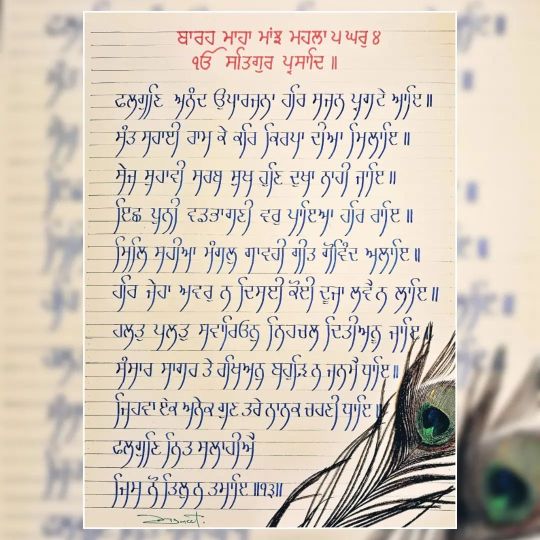 ਬਾਰਹ ਮਾਹਾ ਮਾਂਝ ਮਹਲਾ ੫ ਘਰੁ ੪
ੴ ਸਤਿਗੁਰ ਪ੍ਰਸਾਦਿ ॥
ਫਲਗੁਣਿ ਅਨੰਦ ਉਪਾਰਜਨਾ ਹਰਿ ਸਜਨ ਪ੍ਰਗਟੇ ਆਇ ॥
ਸੰਤ ਸਹਾਈ ਰਾਮ ਕੇ ਕਰਿ ਕਿਰਪਾ ਦੀਆ ਮਿਲਾਇ ॥
ਸੇਜ ਸੁਹਾਵੀ ਸਰਬ ਸੁਖ ਹੁਣਿ ਦੁਖਾ ਨਾਹੀ ਜਾਇ ॥
ਇਛ ਪੁਨੀ ਵਡਭਾਗਣੀ ਵਰੁ ਪਾਇਆ ਹਰਿ ਰਾਇ ॥
ਮਿਲਿ ਸਹੀਆ ਮੰਗਲੁ ਗਾਵਹੀ ਗੀਤ ਗੋਵਿੰਦ ਅਲਾਇ ॥
ਹਰਿ ਜੇਹਾ ਅਵਰੁ ਨ ਦਿਸਈ ਕੋਈ ਦੂਜਾ ਲਵੈ ਨ ਲਾਇ ॥
ਹਲਤੁ ਪਲਤੁ ਸਵਾਰਿਓਨੁ ਨਿਹਚਲ ਦਿਤੀਅਨੁ ਜਾਇ ॥
ਸੰਸਾਰ ਸਾਗਰ ਤੇ ਰਖਿਅਨੁ ਬਹੁੜਿ ਨ ਜਨਮੈ ਧਾਇ ॥
ਜਿਹਵਾ ਏਕ ਅਨੇਕ ਗੁਣ ਤਰੇ ਨਾਨਕ ਚਰਣੀ ਪਾਇ ॥
ਫਲਗੁਣਿ ਨਿਤ ਸਲਾਹੀਐ
ਜਿਸ ਨੋ ਤਿਲੁ ਨ ਤਮਾਇ ॥੧੩॥